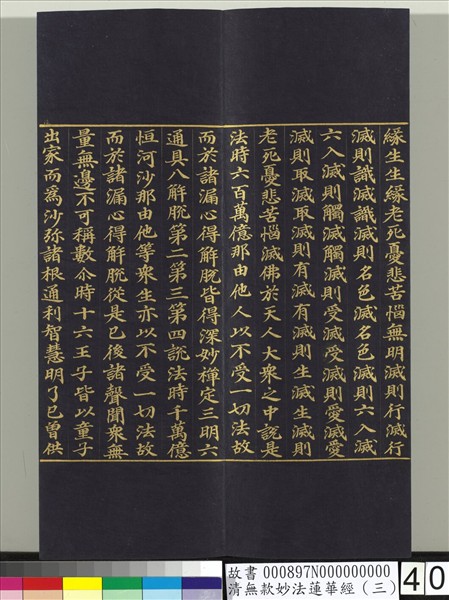 緣生生緣老死憂悲苦惱無明滅則行滅行
滅則識滅識滅則名色滅名色滅則六入滅
六入滅則觸滅觸滅則受滅受滅則愛滅愛
滅則取滅取滅則有滅有滅則生滅生滅則
老死憂悲苦惱滅佛於天人大衆之中說是
法時六百萬億那由他人以不受一切法故
而於諸漏心得解脫皆得深妙禪定三明六
通具八解脫第二第三第四說法時千萬億
恒河沙那由他等衆生亦以不受一切法故
而於諸漏心得解脫從是已後諸聲聞衆無
量無邊不可稱數尒時十六王子皆以童子
出家而爲沙弥諸根通利智慧明了已曾供
故書 000897N000000000
清無款妙法蓮華經（三）
40